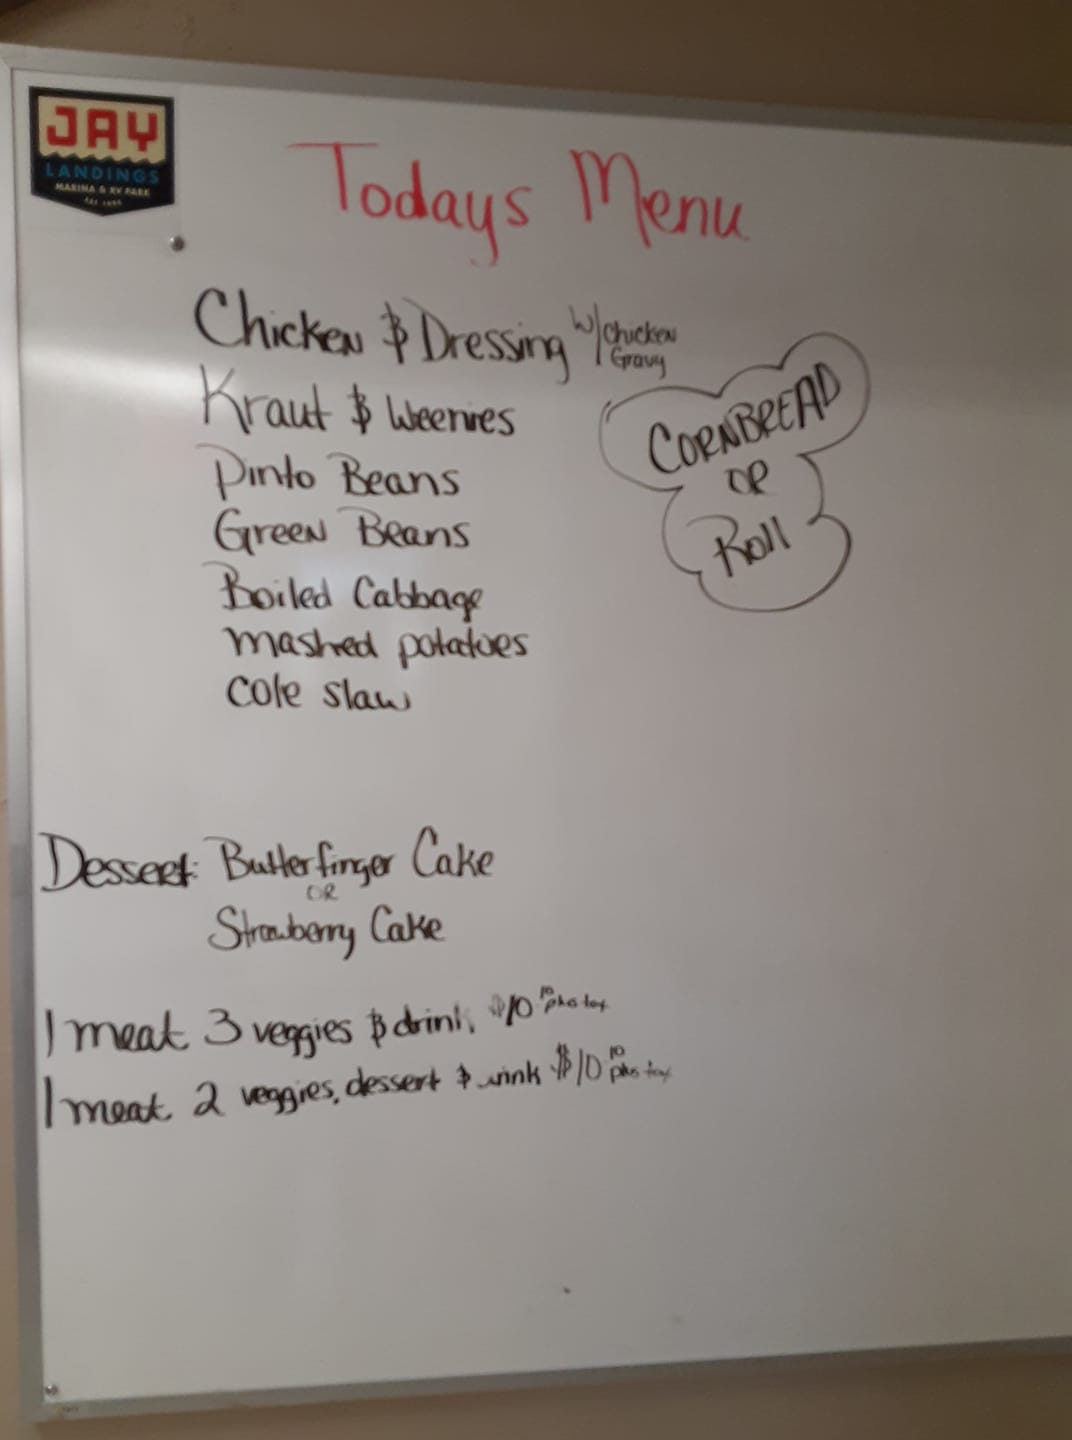 JAY
LANDINGS
MARINA & RV PARK
Todays Menu
Chicken & Dressing w/ Chicken Gravy
Kraut & Weenies
Pinto Beans
Green Beans
Boiled Cabbage
Mashed potatoes
Cole slaw
CORNBREAD
OR
Roll
Dessert: Butterfinger Cake
OR
Strawberry Cake
1 meat 3 veggies & drink $10 10 plus tax
1 meat 2 veggies, dessert & drink $10 10 plus tax